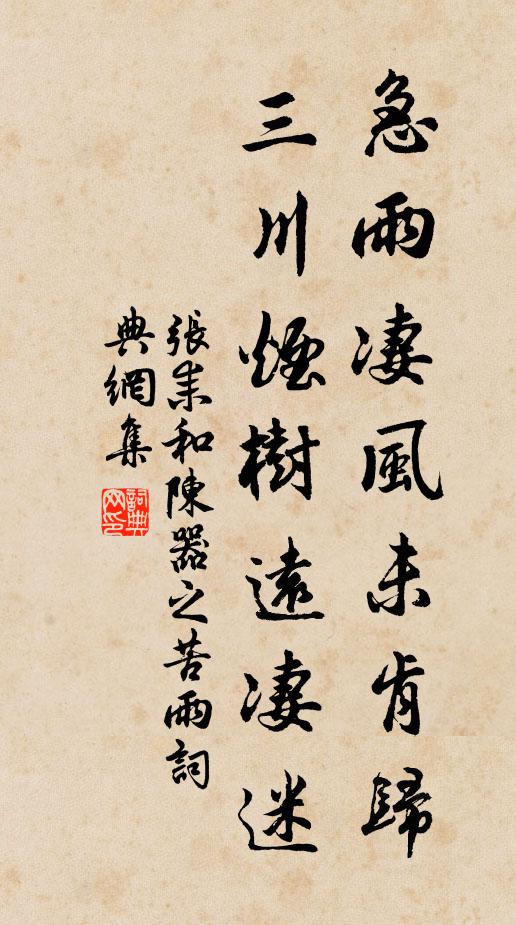 急雨凄風未肯歸
三川煙樹遠凄迷
張耒和陳器之苦雨詞
典網集
詞典網印